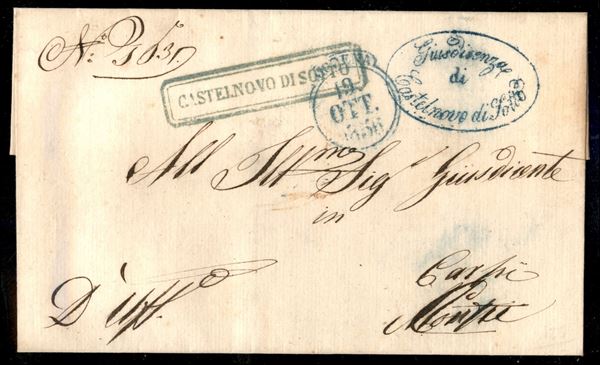 Giusdicenza
di
Castelnovo di Sotto
CASTELNOVO DI SOTTO
19
OTT.
1856
All' Ill.mo Sig. Giusdicente
in
Carpi
D'uff.o